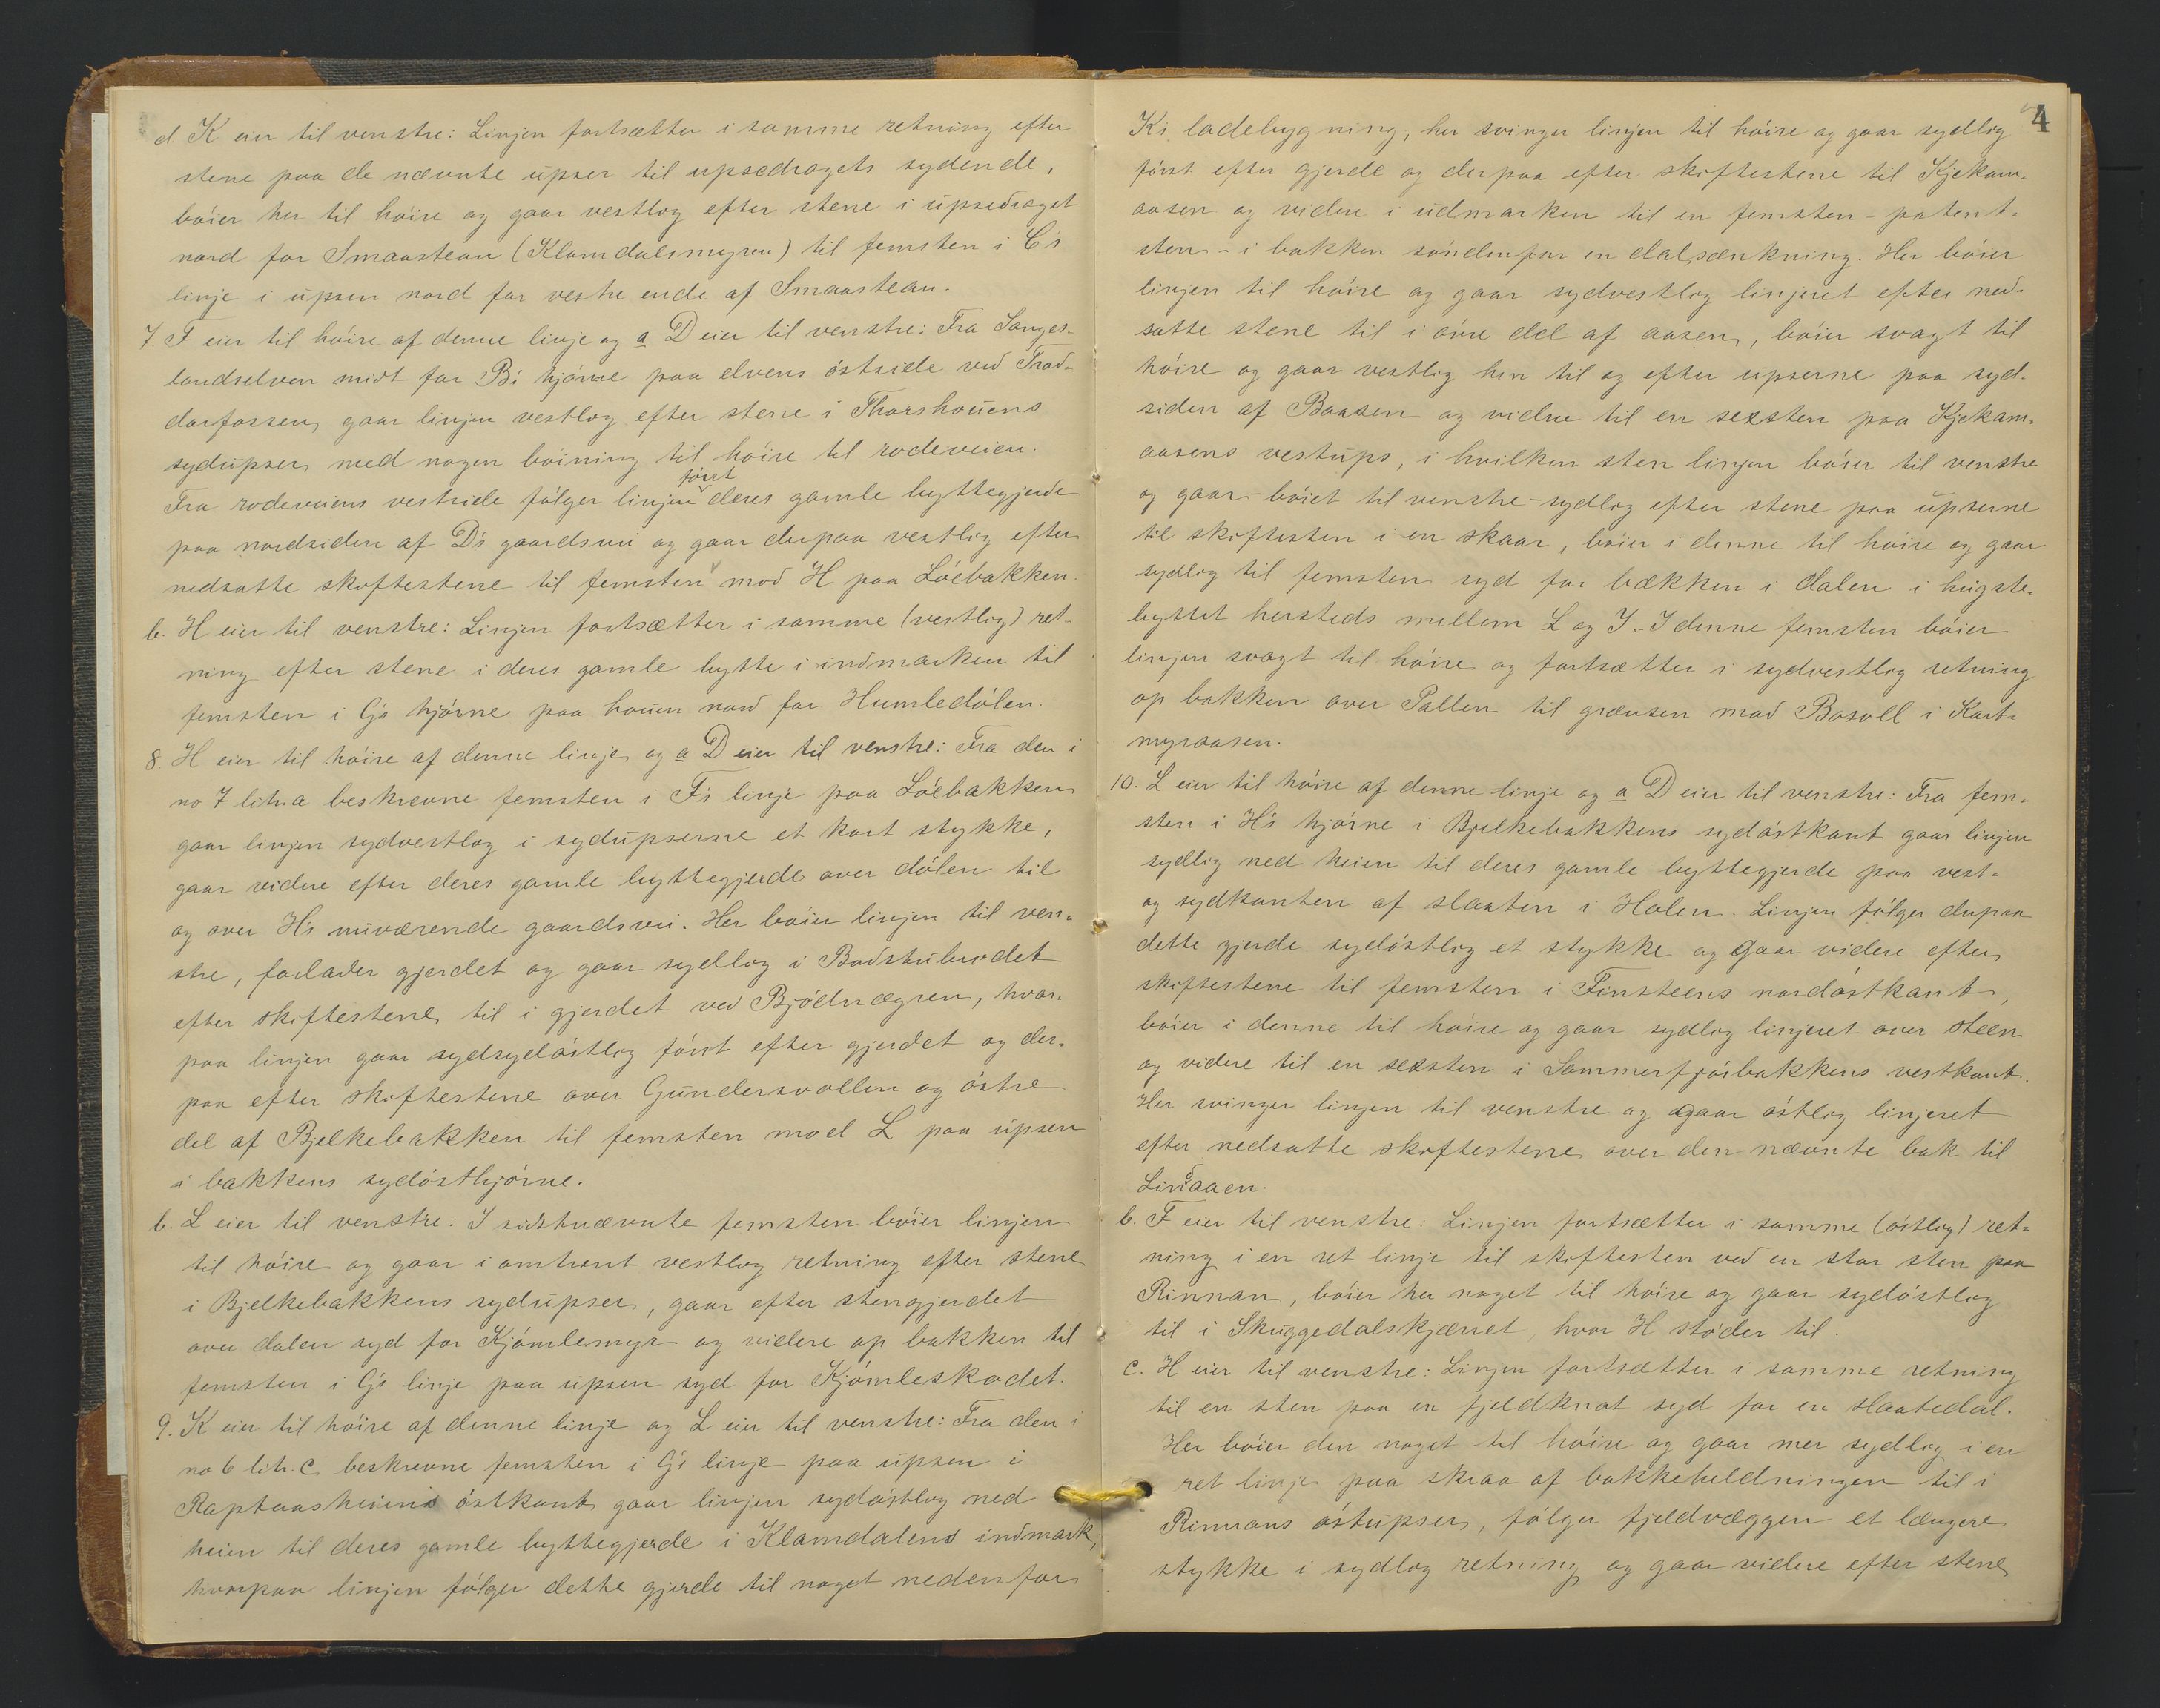 d. K eier til venstre: Linjen fortsætter i samme retning efter
stene paa de nævnte upser til upsedragets sydende,
bóier her til hóire og gaar vestlig efter stene i upsedraget
nord for Smaastean (Klamdalsmyren) til femsten i C's
linje i upsen nord for vestre ende af Smaastean.
7 F eier til hóire af denne linje og a D eier til venstre: Fra Sanges-
landselven midt for B's hjórne paa elvens óstside ved Trad-
darfossen, gaar linjen vestlig efter stene i Thorshouens
sydupser, med nogen boining til hóire til rodeveien.
Fra rodeveiens vestside fólger linjen fórst deres gamle byttegjerde
paa nordsiden af D's gaardsvei og gaar derpaa vestlig efter
nedsatte skiftestene til femsten mod H paa Lóebakken.
b. H eier til venstre: Linjen fortsætter i samme (vestlig) ret-
ning efter stene i deres gamle bytte i indmarken til
femsten i G's hjórne paa houen nord for Humledólen.
8. H eier til hóire af denne linje, og a D eier til venstre: Fra den i
no 7 litr. a beskrevne femsten i F's linje paa Lóebakken
gaar linjen sydvestlig i sydupserne et kort stykke,
gaar videre efter deres gamle byttegjerde over dólen til
og over H's nuværende gaardsvei. Her bóier linjen til ven-
stre, forlader gjerdet og gaar sydlig i Badstubrodet
efter skiftestene til i gjerdet ved Bjódnægren, hvor-
paa linjen gaar sydsydóstlig fórst efter gjerdet og der-
paa efter skiftestene over Gundersvollen og óstre
del af Bjelkebakken til femsten mod L paa upsen
i bakkens sydósthjórne.
b. L eier til venstre: I sidstnævnte femsten bóier linjen
til hóire og gaar i omtrent vestlig retning efter stene
i Bjelkebakkens sydupser, gaar efter stengjerdet
over dalen syd for Kjómlemyr og videre op bakken til
femsten i G's linje paa upsen syd for Kjómleskadet.
9. K eier til hóire af denne linje og L eier til venstre: Fra den i
no 6 litr. c. beskrevne femsten i G's linje paa upsen i
Raptaasheiens óstkant, gaar linjen sydóstlig ned
heien til deres gamle byttegjerde i Klamdalens indmark,
hvorpaa linjen fólger dette gjerde til noget nedenfor
4
K's ladebygning, her svinger linjen til hóire og gaar sydlig
fórst efter gjerde og derpaa efter skiftestene til Kjekam-
aasen og videre i udmarken til en femsten - patent-
sten - i bakken sóndenfor en dalsænkning. Her bóier
linjen til hóire og gaar sydvestlig linjeret efter ned-
satte stene til i óvre del af aasen, bóier svagt til
hóire og gaar vestlig hen til og efter upserne paa syd-
siden af Baasen og videre til en sexsten paa Kjekam-
aasens vestups, i hvilken sten linjen bóier til venstre
og gaar - bóiet til venstre - sydlig efter stene paa upserne
til skiftesten i en skaar, bóier i denne til hóire og gaar
sydlig til femsten syd for bækken i dalen i hugste-
byttet hersteds mellem L og I. - I denne femsten bóier
linjen svagt til hóire og fortsætter i sydvestlig retning
op bakken over Pallen til grænsen mod Bosvll i Kart-
myraasen.
10. L eier til hóire af denne linje og a D eier til venstre: Fra fem-
sten i H's hjórne i Bjelkebakkens sydóstkant gaar linjen
sydlig ned heien til deres gamle byttegjerde paa vest-
og sydkanten af slaatten i Holen. Linjen fólger derpaa
dette gjerde sydóstlig et stykke og gaar videre efter
skiftestene til femsten i Finsteens nordóstkant,
bóier i denne til hóire og gaar sydlig linjeret over steen
og videre til en sexsten i Sommerfjósbakkens vestkant.
Her svinger linjen til venstre og gaar óstlig linjeret
efter nedsatte skiftestene over den nævnte bak til
Linaaen.
b. F eier til venstre: Linjen fortsætter i samme (óstlig) ret-
ning i en ret linje til skiftesten ved en stor sten paa
Rinnan, bóier her noget til hóire og gaar sydóstlig
til i Skuggedalskjærret, hvor H stóder til.
c. H eier til venstre: Linjen fortsætter i samme retning
til en sten paa en fjeldknat syd for en slaatedal.
Her bóier den noget til hóire og gaar mer sydlig i en
ret linje paa skraa af bakkeheldningen til i
Rinnans óstupser, fólger fjeldvæggen et længere
stykke i sydlig retning og gaar videre efter stene